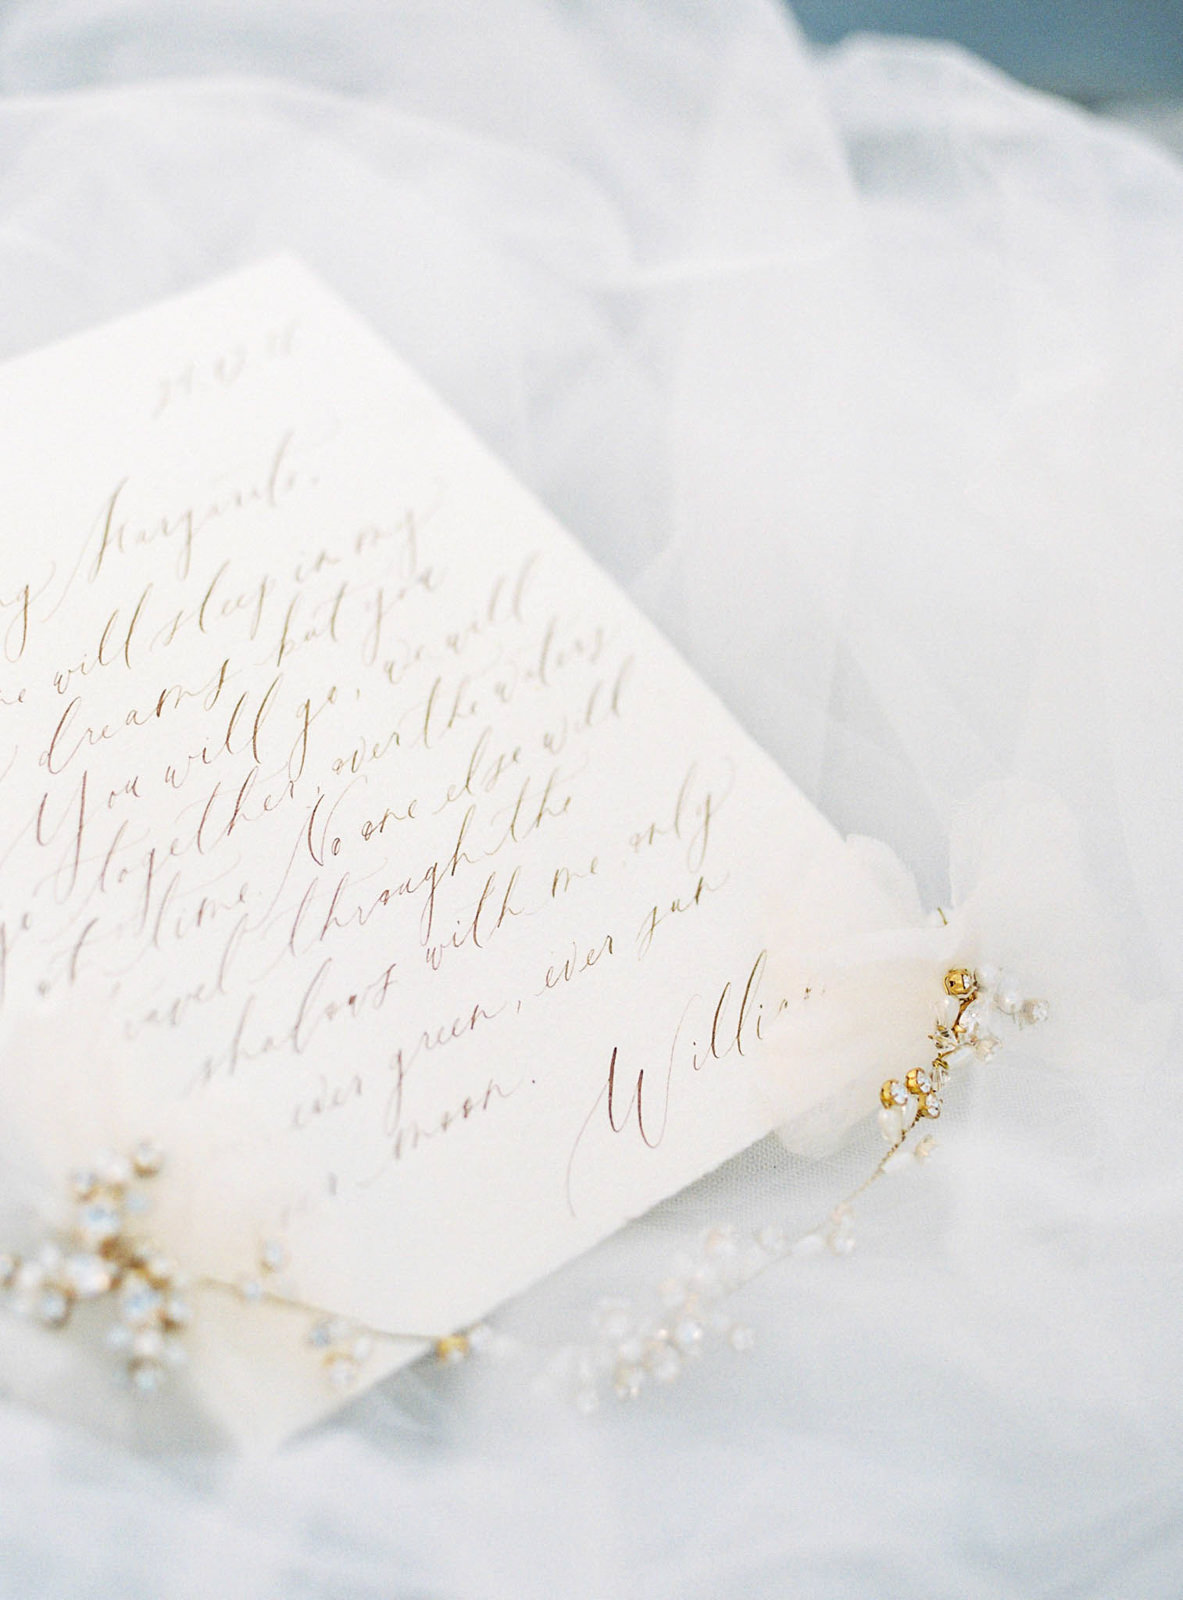 Margarita.
will sleep in my
dreams but you
You will go, we will
go together, over the waters
of time. No one else will
travel through the
shadows with me, only
ever green, ever sun
moon.
William